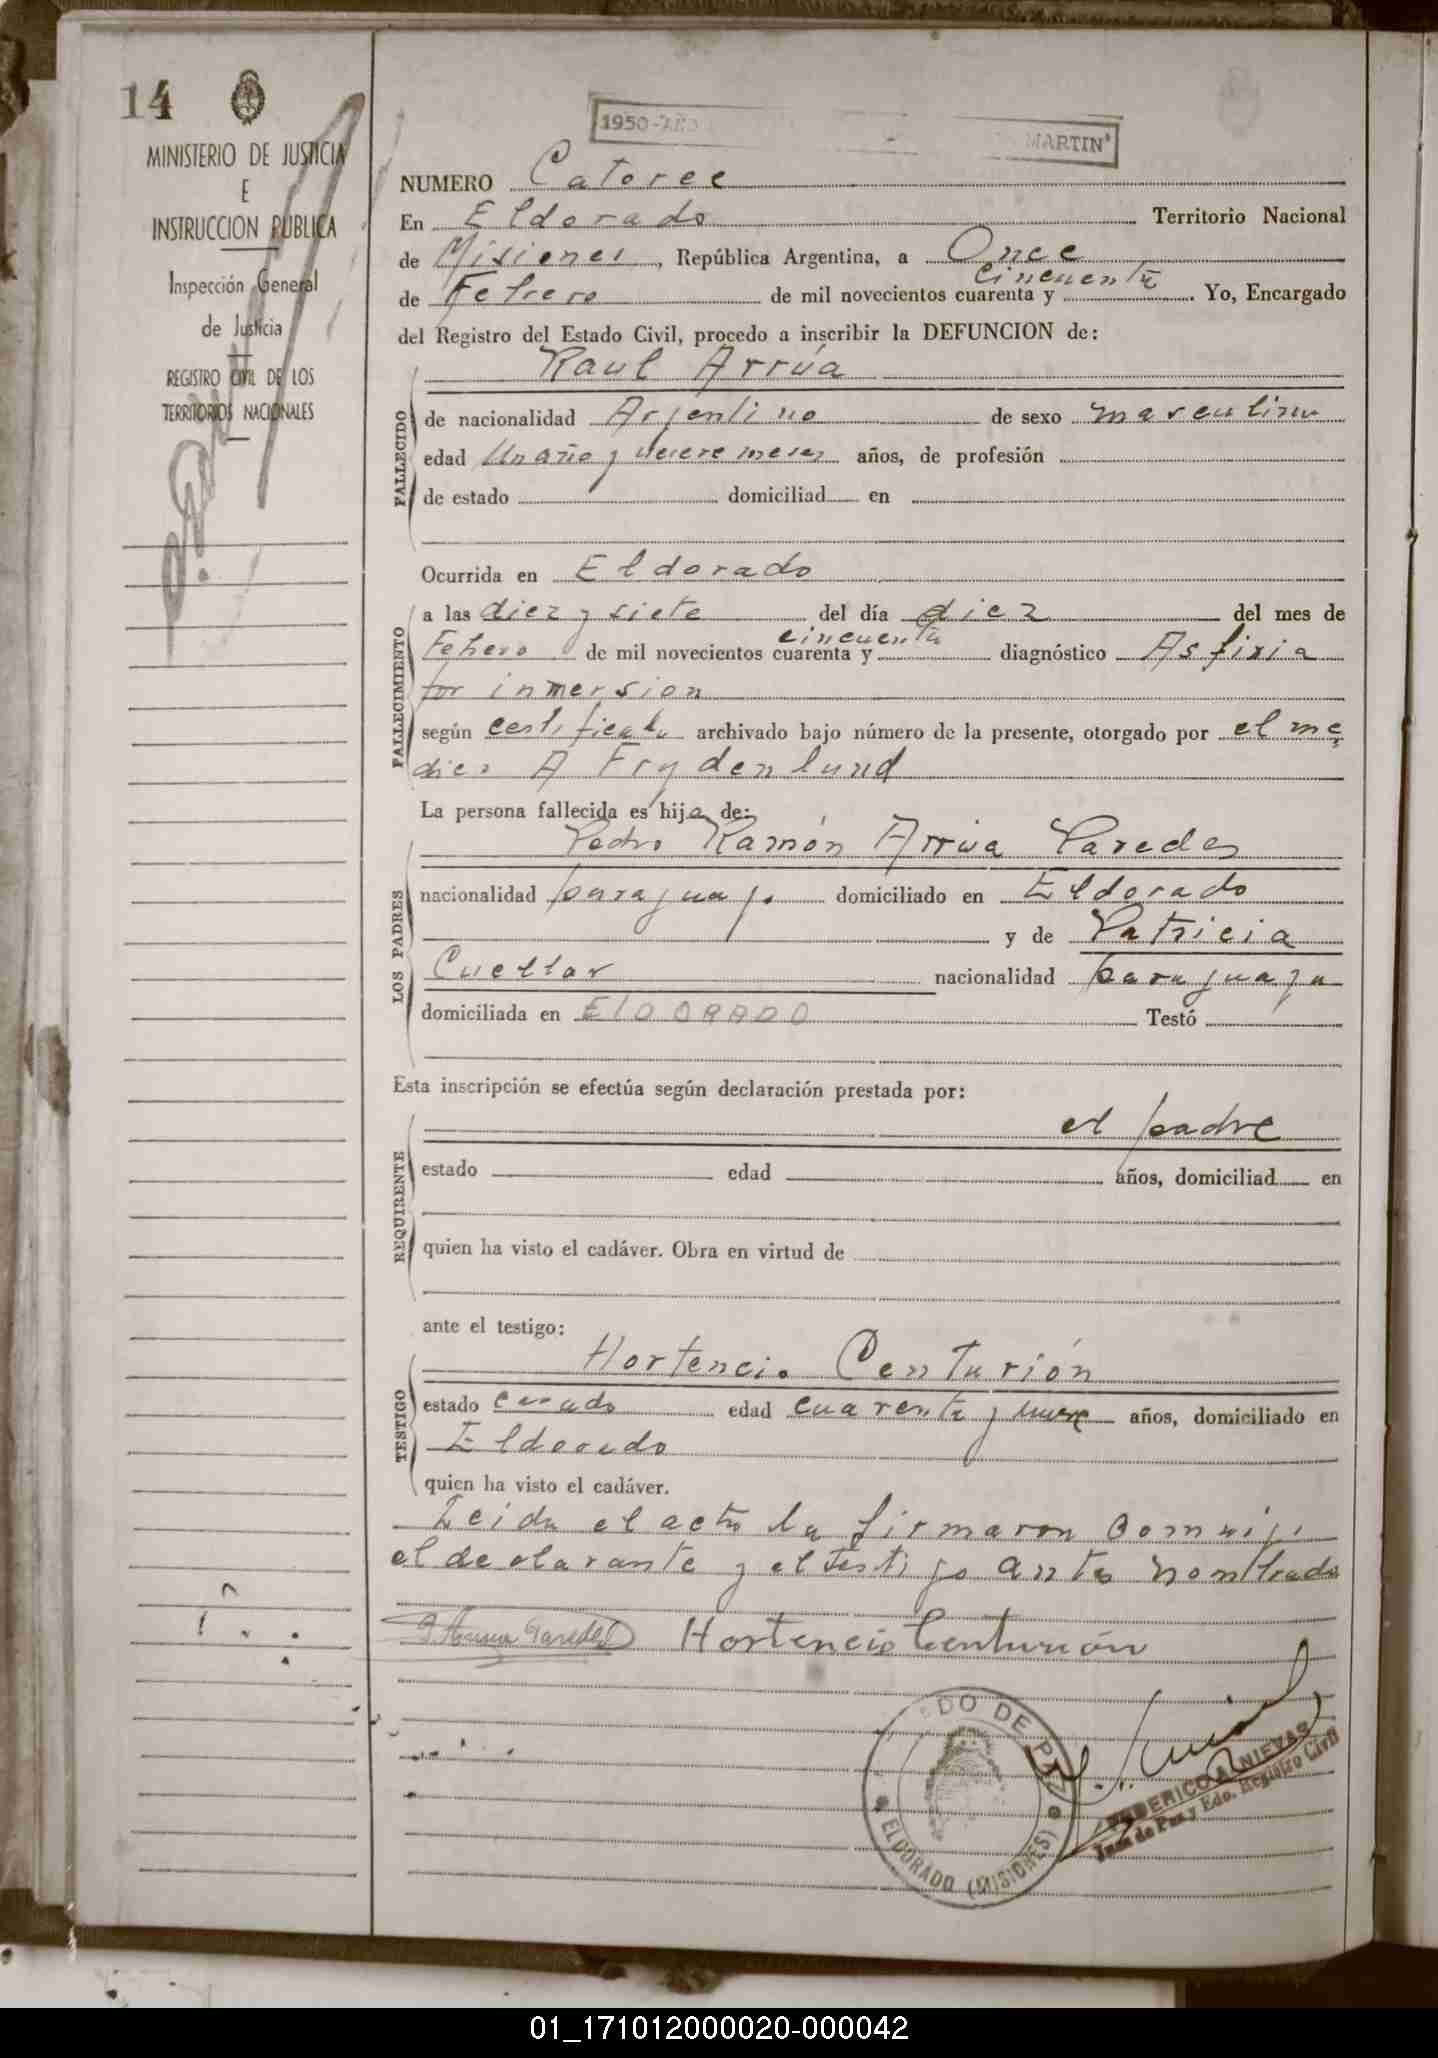 14
MINISTERIO DE JUSTICIA
E
INSTRUCCION PUBLICA
Inspección General
de Justicia
REGISTRO CIVIL DE LOS
TERRITORIOS NACIONALES
1950-AÑO MARTIN"
NUMERO Catorce
En Eldorado Territorio Nacional
de Misiones, República Argentina, a Once
cincuenta
de Febrero de mil novecientos cuarenta y Yo, Encargado
del Registro del Estado Civil, procedo a inscribir la DEFUNCION de:
Raul Arrúa
FALLECIDO
de nacionalidad Argentino de sexo masculino
edad Un año y nueve meses años, de profesión
de estado domiciliad en
Ocurrida en Eldorado
FALLECIMIENTO
a las diez y siete del día diez del mes de
cincuenta
Febrero de mil novecientos cuarenta y diagnóstico Asfixia
por inmersion
según certificado archivado bajo número de la presente, otorgado por el mé
dico A Frydenlund
La persona fallecida es hijo de:
LOS PADRES
Pedro Ramón Arrúa Paredes
nacionalidad paraguayo domiciliado en Eldorado
y de Patricia
Cuellar nacionalidad paraguaya
domiciliada en ElDORADO Testó
Esta inscripción se efectúa según declaración prestada por:
REQUIRENTE
el padre
estado edad años, domiciliad en
quien ha visto el cadáver. Obra en virtud de
ante el testigo:
TESTIGO
Hortencio Centurión
estado casado edad cuarenta y nueve años, domiciliado en
Eldorado
quien ha visto el cadáver.
Leida el acta la firmaron conmigo
el declarante y el testigo antes nombrado
P. Arrua Paredes Hortencio Centurión
DO DE PAZ
ELDORADO (MISIONES)
FEDERICO A. NIEVAS
Juez de Paz y Edo. Registro Civil
01_171012000020-000042